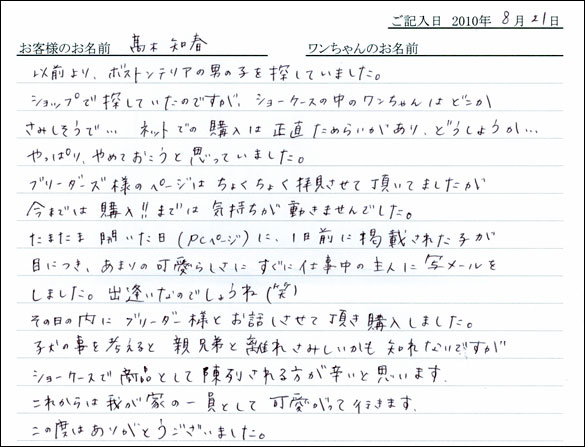 ご記入日 2010年 8月 21日
お客様のお名前 髙木 知春 ワンちゃんのお名前
以前より、ボストンテリアの男の子を探していました。
ショップで探していたのですが、ショーケースの中のワンちゃんはどこか
さみしそうで… ネットでの購入は正直ためらいがあり、どうしようか…
やっぱり、やめておこうと思っていました。
ブリーダーズ様のページはちょくちょく拝見させて頂いてましたが
今までは購入!!までは気持ちが動きませんでした。
たまたま開いた日(PCページ)に、1日前に掲載された子が
目につき、あまりの可愛らしさにすぐに仕事中の主人に写メールを
しました。出逢いなのでしょうね(笑)
その日の内にブリーダー様とお話しさせて頂き購入しました。
子犬の事を考えると親兄弟と離れさみしいかも知れないですが
ショーケースで商品として陳列される方が辛いと思います。
これからは我が家の一員として可愛がって行きます。
この度はありがとうございました。